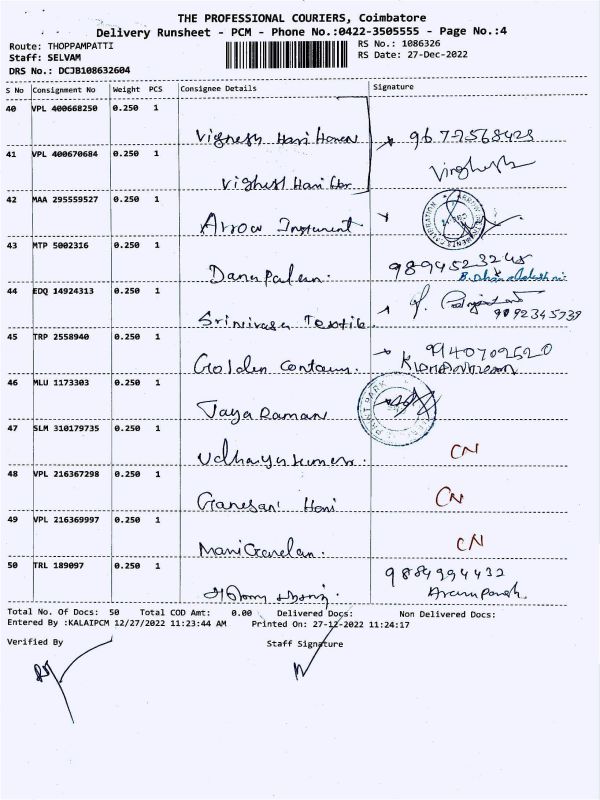 THE PROFESSIONAL COURIERS, Coimbatore
Delivery Runsheet - PCM - Phone No.:0422-3505555 - Page No.:4
Route: THOPPAMPATTI RS No.: 1086326
Staff: SELVAM RS Date: 27-Dec-2022
DRS No.: DCJB108632604
S No Consignment No Weight PCS Consignee Details Signature
40 VPL 400668250 0.250 1
Vignesh Hari 9677568428
41 VPL 400670684 0.250 1
Vighesh Hari
42 MAA 295559527 0.250 1
Arrow Instrument
43 MTP 5002316 0.250 1
9894523248
44 EDQ 14924313 0.250 1
Srinivasa Textile 9092345739
45 TRP 2558940 0.250 1
Golden 9940702520
46 MLU 1173303 0.250 1
Jaya Raman
47 SLM 310179735 0.250 1
Udhayakumar. CN
48 VPL 216367298 0.250 1
Ganesan Hari CN
49 VPL 216369997 0.250 1
CN
50 TRL 189097 0.250 1
9884994432
Total No. Of Docs: 50 Total COD Amt: 0.00 Delivered Docs: Non Delivered Docs:
Entered By :KALAIPCM 12/27/2022 11:23:44 AM Printed On: 27-12-2022 11:24:17
Verified By Staff Signature